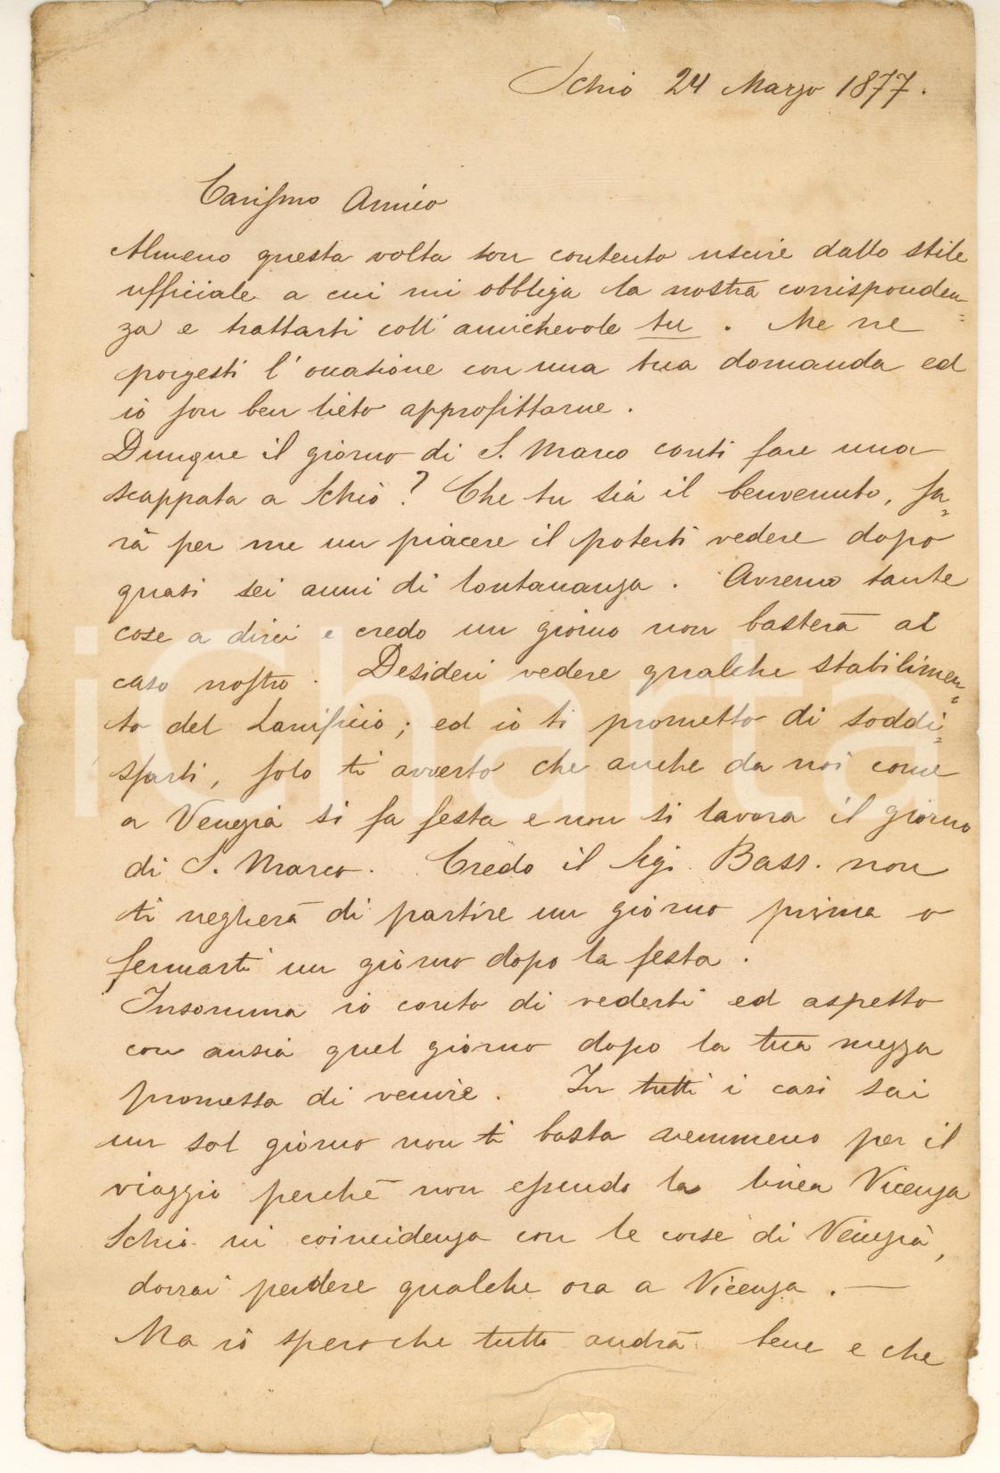 Schio 24 Marzo 1877.
Carissmo Amico
Almeno questa volta son contento uscire dallo stile
ufficiale a cui mi obbliga la nostra corrisponden=
za e trattarti coll' amichevole tu . Me ne
porgesti l' occasione con una tua domanda ed
io son ben lieto approfittarne .
Dunque il giorno di S. Marco conti fare una
scappata a Schio ? Che tu sia il benvenuto, sa=
rà per me un piacere il poterti vedere dopo
quasi sei anni di lontananza . Avremo tante
cose a dirci e credo un giorno non basterà al
caso nostro . Desideri vedere qualche stabilimen=
to del Lanificio ; ed io ti prometto di soddi=
sfarti, solo ti avverto che anche da noi come
a Venezia si fa festa e non si lavora il giorno
di S. Marco . Credo il Sigr. Bass. non
ti negherà di partire un giorno prima o
fermarti un giorno dopo la festa .
Insomma io conto di vederti ed aspetto
con ansia quel giorno dopo la tua mezza
promessa di venire . In tutti i casi sai
un sol giorno non ti basta nemmeno per il
viaggio perchè non essendo la linea Vicenza
Schio in coincidenza con le corse di Venezia,
dovrai perdere qualche ora a Vicenza . —
Ma io spero che tutto andrà bene e che
icharta